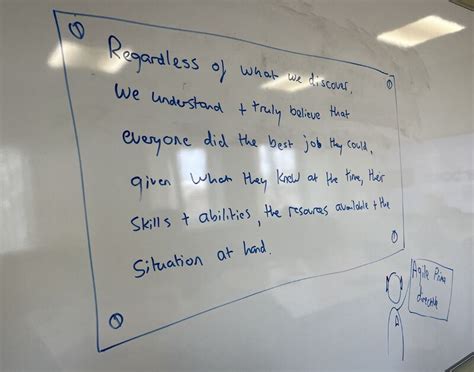 Regardless of what we discover,
we understand + truly believe that
everyone did the best job they could,
given what they know at the time, their
skills + abilities, the resources available + the
situation at hand.
Agile Prime
directive